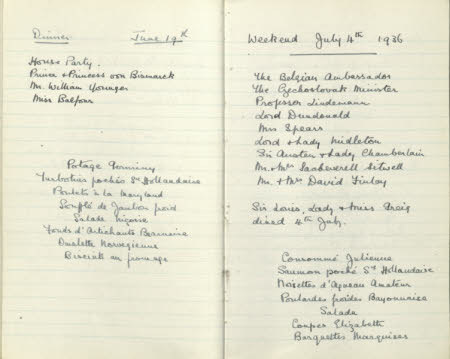 Dinner June 19th
House Party.
Prince & Princess von Bismarck
Mr. William Younger
Miss Balfour
Potage Germiny
Turbotin poché Sce Hollandaise
Poulet à la Maryland
Soufflé de Jambon froid
Salade Niçoise
Fonds d'Artichauts Béarnaise
Omelette Norvegienne
Biscuits au fromage
Weekend July 4th 1936
The Belgian Ambassador
The Czechoslovak Minister
Professor Lindemann
Lord Dundonald
Mrs Spears
Lord & Lady Midleton
Sir Austen & Lady Chamberlain
Mr & Mrs Sacheverell Sitwell
Mr. & Mrs David Finlay
Sir Louis, Lady & Miss Greig
dined 4th July.
Consommé Julienne
Saumon poché Sce Hollandaise
Noisettes d'Agneau Amateur
Poulardes froides Bayonnaise
Salade
Coupes Elizabeth
Barquettes Marquises